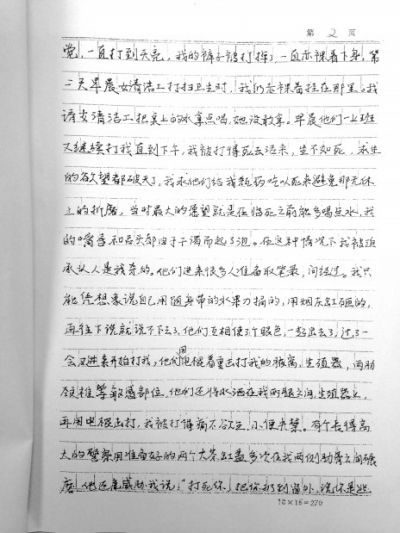 第 2 页
觉，一直打到天亮，我的裤子被打掉了，一直赤裸着下身，第
二天早晨女清洁工打扫卫生时，我仍赤裸着挂在那里。我
请女清洁工把桌上的水拿点喝，她没敢拿。早晨他们一上班
又继续打我直到下午，我被打得死去活来，生不如死，求生
的欲望都破灭了，我求他们给我瓶药吃以死来避免那无休
止的折磨，当时最大的愿望就是在临死之前能多喝点水，我
的嘴唇和舌头都由于干渴而起了泡。在这种情况下我被迫
承认人是我杀的。他们进来很多人准备取笔录，问经过。我只
能凭想象说自己用随身带的水果刀捅的，用烟灰缸砸的，
再往下说就说不下去了，他们互相使了个眼色，一起出去了，过了一
会又进来开始打我，他们用电棍着重击打我的裆离，生殖器，两肋
颈椎等敏感部位，他们还将水洒在我两腿之间，生殖器上，
再用电棍击打，我被打得痛不欲生，小便失禁。有个长得高
大的警察用准备好的两个大茶缸盖多次在我两侧肋骨之间碾
磨，他还来威胁我说："打死你，把你扔到窗外，说你是逃
18×15=270